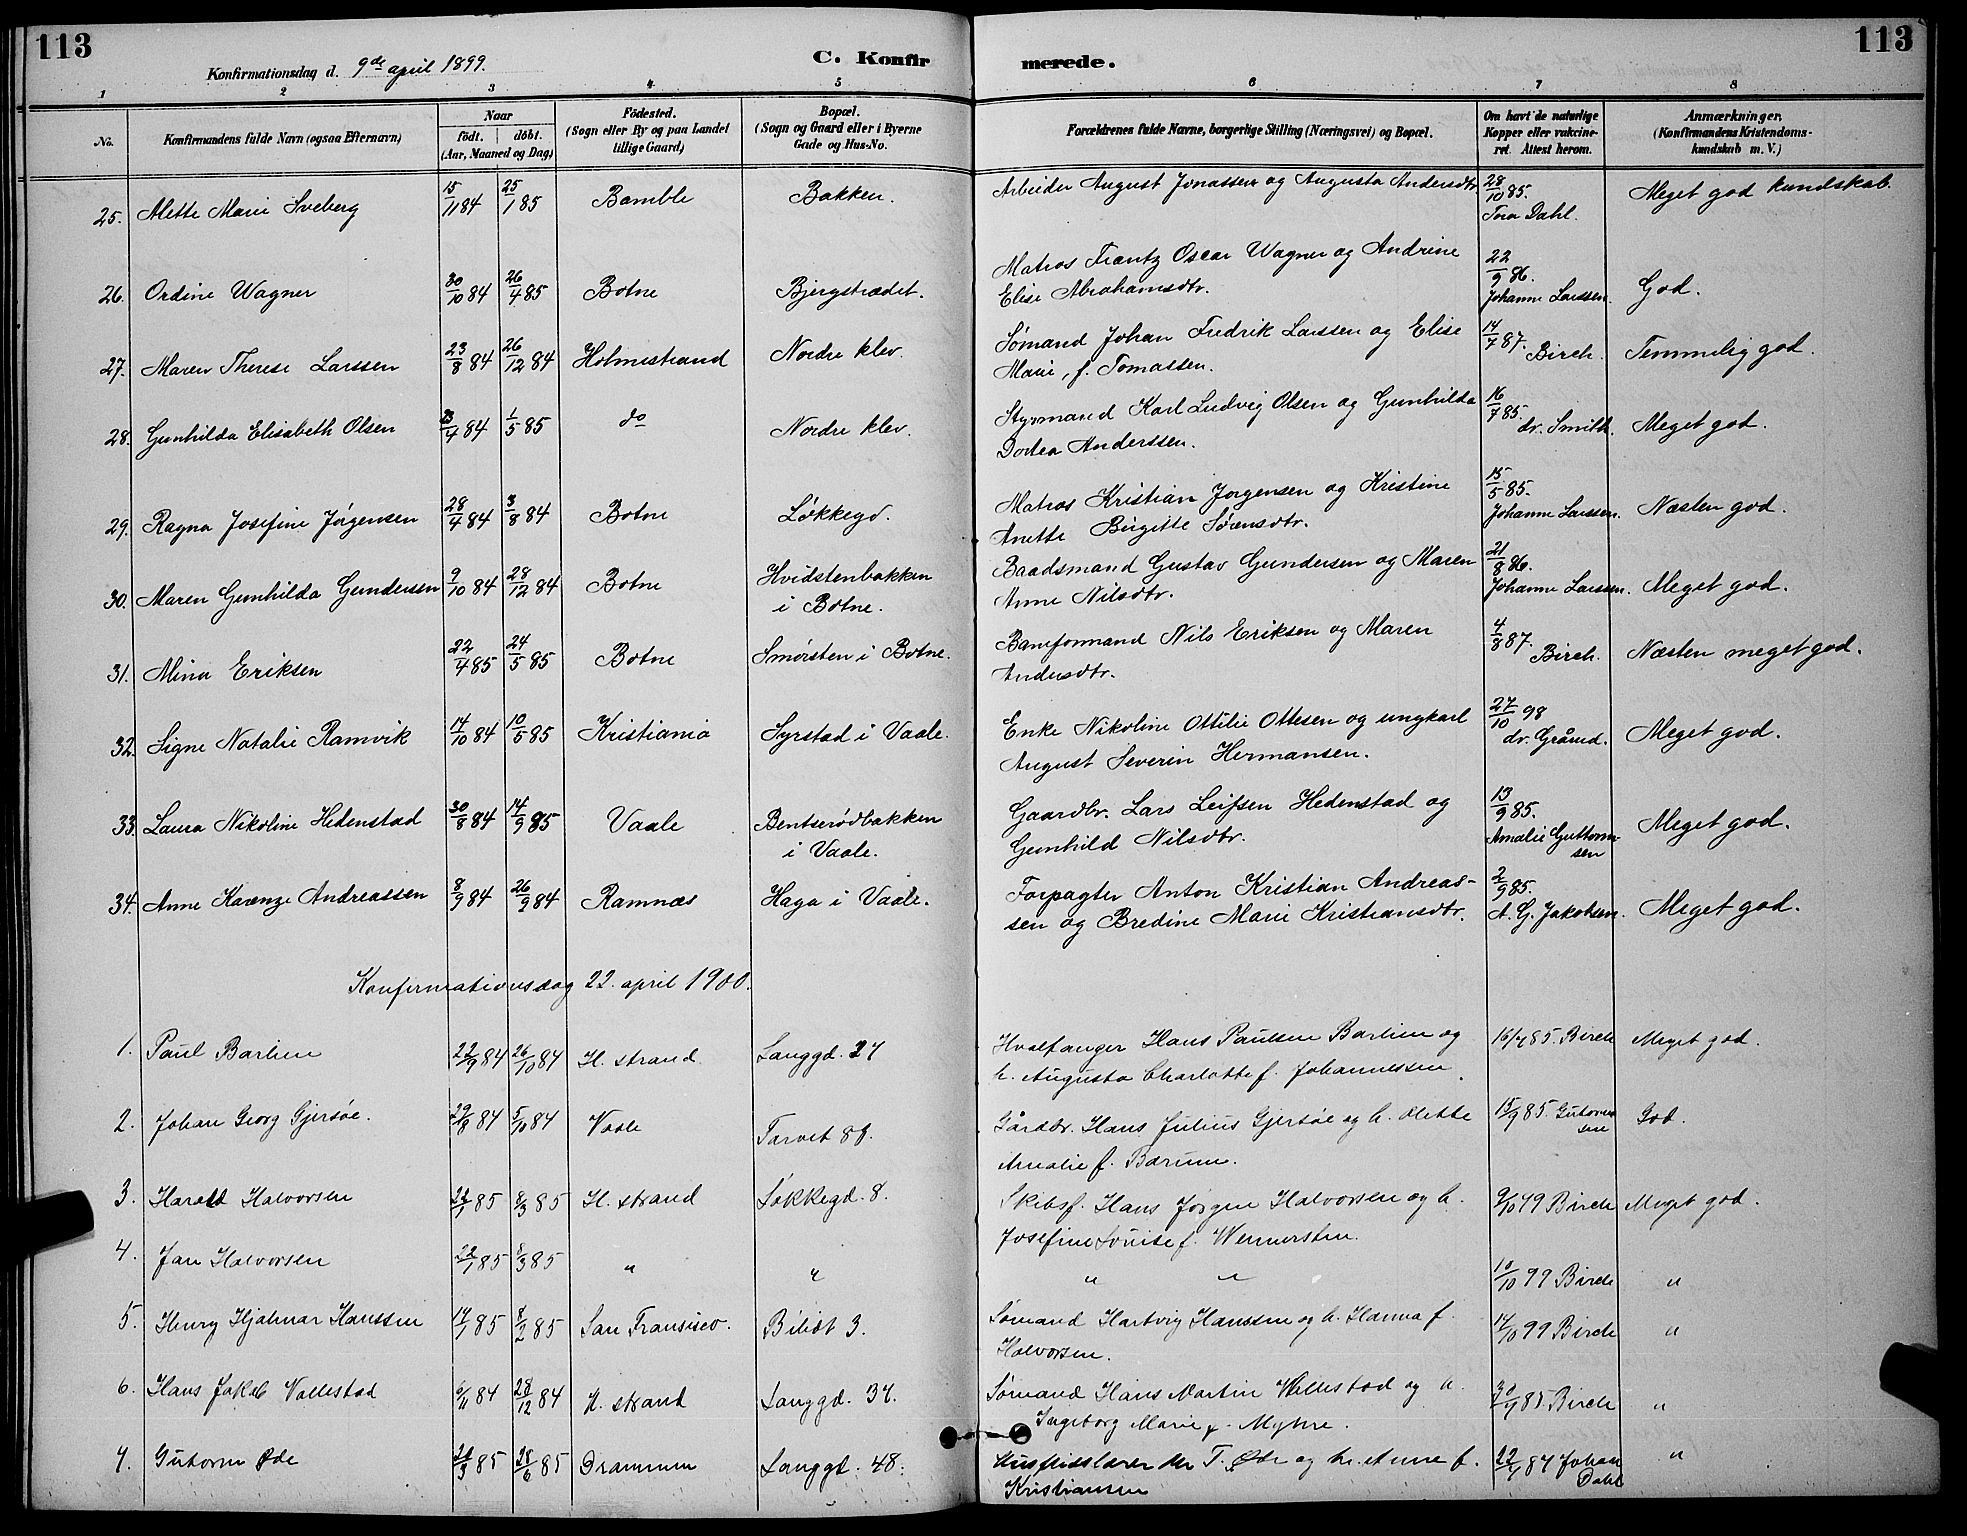 113
Konfirmationsdag d. 9de april 1899.
C. Konfirmerede.
113
1 2 3 4 5 6 7 8
No.
Konfirmandens fulde Navn (ogsaa Efternavn)
Naar
født. døbt.
(Aar, Maaned og Dag)
Födested.
(Sogn eller By og paa Landet
tillige Gaard)
Bopæl.
(Sogn og Gaard eller i Byerne
Gade og Hus-No.
Forældrenes fulde Navne, borgerlige Stilling (Næringsvei) og Bopæl.
Om havt de naturlige
Kopper eller vakcine-
ret. Attest herom.
Anmærkninger.
(Konfirmandens Kristendoms-
kundskab m. V.)
25. Alette Marie Sveberg 15/11 84 25/1 85 Bamble Bakken. Arbeider August Jonassen og Augusta Andersdtr. 28/10 85. Tora Dahl. Meget god kundskab.
26. Ordine Wagner 30/10 84 26/4 85 Botne Bjergstrædet. Matros Frantz Oscar Wagner og Andrine
Elise Abrahamsdtr. 22/9 86. Johanne Larssen. God.
27. Maren Therese Larssen 23/8 84 26/12 84 Holmestrand Nordre klev. Sømand Johan Fredrik Larssen og Elise
Marie, f. Tomassen. 14/7 87. Birch. Temmelig god.
28. Gunhilda Elisabeth Olsen 23/4 84 1/5 85 do Nordre klev. Styrmand Karl Ludvig Olsen og Gunhilda
Dortea Anderssen. 16/7 85. dr. Smith. Meget god.
29. Ragna Josefine Jørgensen 28/4 84 3/8 84 Botne Løkkegd. Matros Kristian Jørgensen og Kristine
Anette Birgitte Sørensdtr. 15/5 85. Johanne Larssen. Næsten god.
30. Maren Gunhilda Gundersen 9/10 84 28/12 84 Botne Hvidstenbakken
i Botne. Baadsmand Gustav Gundersen og Maren
Anne Nilsdtr. 21/8 86. Johanne Larssen. Meget god.
31. Mina Eriksen 22/4 85 24/5 85 Botne Smørsten i Botne. Baneformand Nils Eriksen og Maren
Andersdtr. 4/8 87. Birch. Næsten meget god.
32. Signe Natalie Ramvik 14/10 84 10/5 85 Kristiania Syrstad i Vaale. Enke Nikoline Ottilie Ottesen og ungkarl
August Severin Hermansen. 27/10 98 dr. Gårud. Meget god.
33. Laura Nikoline Hedenstad 30/8 84 14/9 85 Vaale Bentserødbakken
i Vaale. Gaardbr. Lars Leifsen Hedenstad og
Gunhild Nilsdtr. 13/9 85. Amalie Guttorm-
sen Meget god.
34. Anne Karenze Andreassen 8/9 84 26/9 84 Ramnæs Haga i Vaale. Forpagter Anton Kristian Andreas-
sen og Bredine Marie Kristiansdtr. 2/9 85. A. G. Jakobsen. Meget god.
Konfirmationsdag 22. april 1900.
1. Paul Barlien 22/9 84 26/10 84 H. strand Langgd. 27 Hvalfanger Hans Paulsen Barlien og
h. Augusta Charlotte f. Johannessen. 16/7 85. Birch Meget god.
2. Johan Georg Gjersøe. 29/8 84 5/10 84 Vaale Torvet 87. Gårdbr. Hans Julius Gjersøe og h. Mette
Amalie f. Bærum. 15/9 85 Gutorm
sen God.
3. Harald Halvorsen 22/1 85 8/3 85 H. strand Løkkegd. 8. Skibsf. Hans Jørgen Halvorsen og h.
Josefine Louise f. Wennersten. 9/10 99 Birch Meget god.
4. Jan Halvorsen 22/1 85 8/3 85 " " " " 10/10 99 Birch "
5. Henry Hjalmar Hanssen 14/1 85 8/2 85 San Fransisco. Bilidt 3. Sømand Hartvig Hanssen og h. Hanna f.
Halvorsen. 14/10 99 Birch "
6. Hans Jakob Vallestad 6/11 84 28/12 84 H. strand Langgd. 37. Sømand Hans Martin Vallestad og h.
Ingeborg Marie f. Myhre. 30/7 85 Birch "
7. Gutorm Øde 24/3 85 28/6 85 Drammen Langgd. 48. T. Øde og h. Anne f.
Kristiansen 22/7 87 Johan
Dahl "